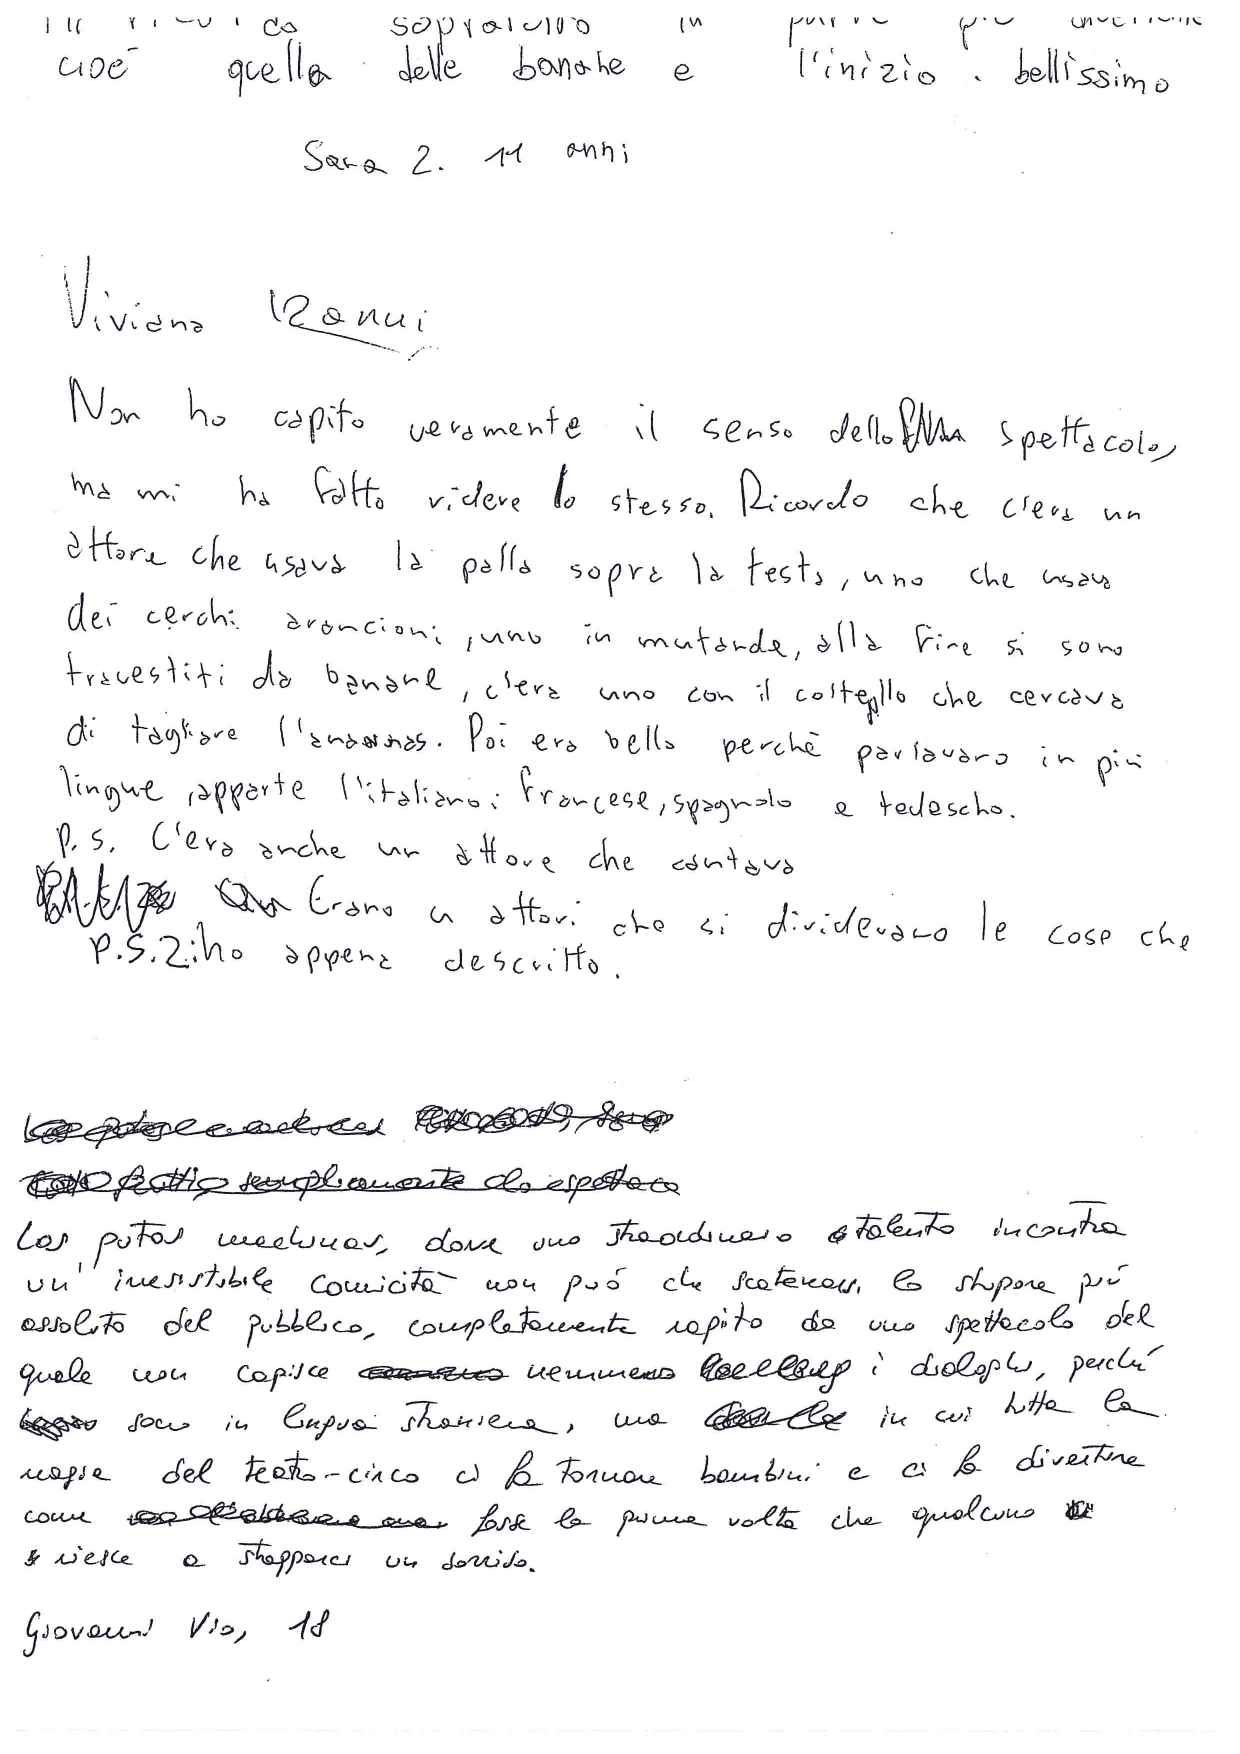 soprattutto in
cioè quella delle banane e l'inizio. bellissimo
Sara Z. 11 anni
Viviana 12 anni
Non ho capito veramente il senso dello spettacolo,
ma mi ha fatto ridere lo stesso. Ricordo che c'era un
attore che usava la palla sopra la testa, uno che usava
dei cerchi arancioni, uno in mutande, alla fine si sono
travestiti da banane, c'era uno con il coltello che cercava
di tagliare l'ananas. Poi era bello perchè parlavano in più
lingue, apparte l'italiano: francese, spagnolo e tedescho.
P.S. C'era anche un attore che cantava
Erano 4 attori che si dividevano le cose che
P.S.2: ho appena descritto.
semplicemente
Las putas mechinas, dove uno straordinario talento incontra
un'irresistibile comicità non può che scatenarsi lo stupore più
assoluto del pubblico, completamente rapito da uno spettacolo del
quale non capisce nemmeno i dialoghi, perché
sono in lingua straniera, ma in cui tutta la
magia del teatro-circo ci fa tornare bambini e ci fa divertire
come fosse la prima volta che qualcuno
riesce a strapparci un sorriso.
Giovanni Vio, 18